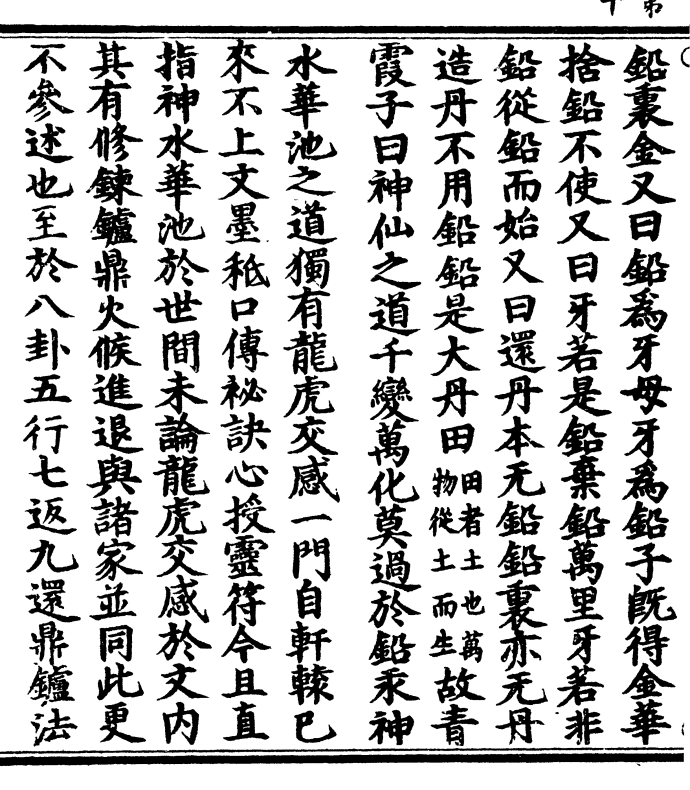 鉛裏金又曰鉛爲牙母牙爲鉛子旣得金華
捨鉛不使又曰牙若是鉛棄鉛萬里牙若非
鉛從鉛而始又曰還丹本无鉛鉛裏亦无丹
造丹不用鉛鉛是大丹田田者土也萬物從土而生故青
霞子曰神仙之道千變萬化莫過於鉛汞神
水華池之道獨有龍虎交感一門自軒轅已
來不上文墨秖口傳祕訣心授靈符今且直
指神水華池於世間未論龍虎交感於文内
其有修鍊鑪鼎火候進退與諸家並同此更
不參述也至於八卦五行七返九還鼎鑪法